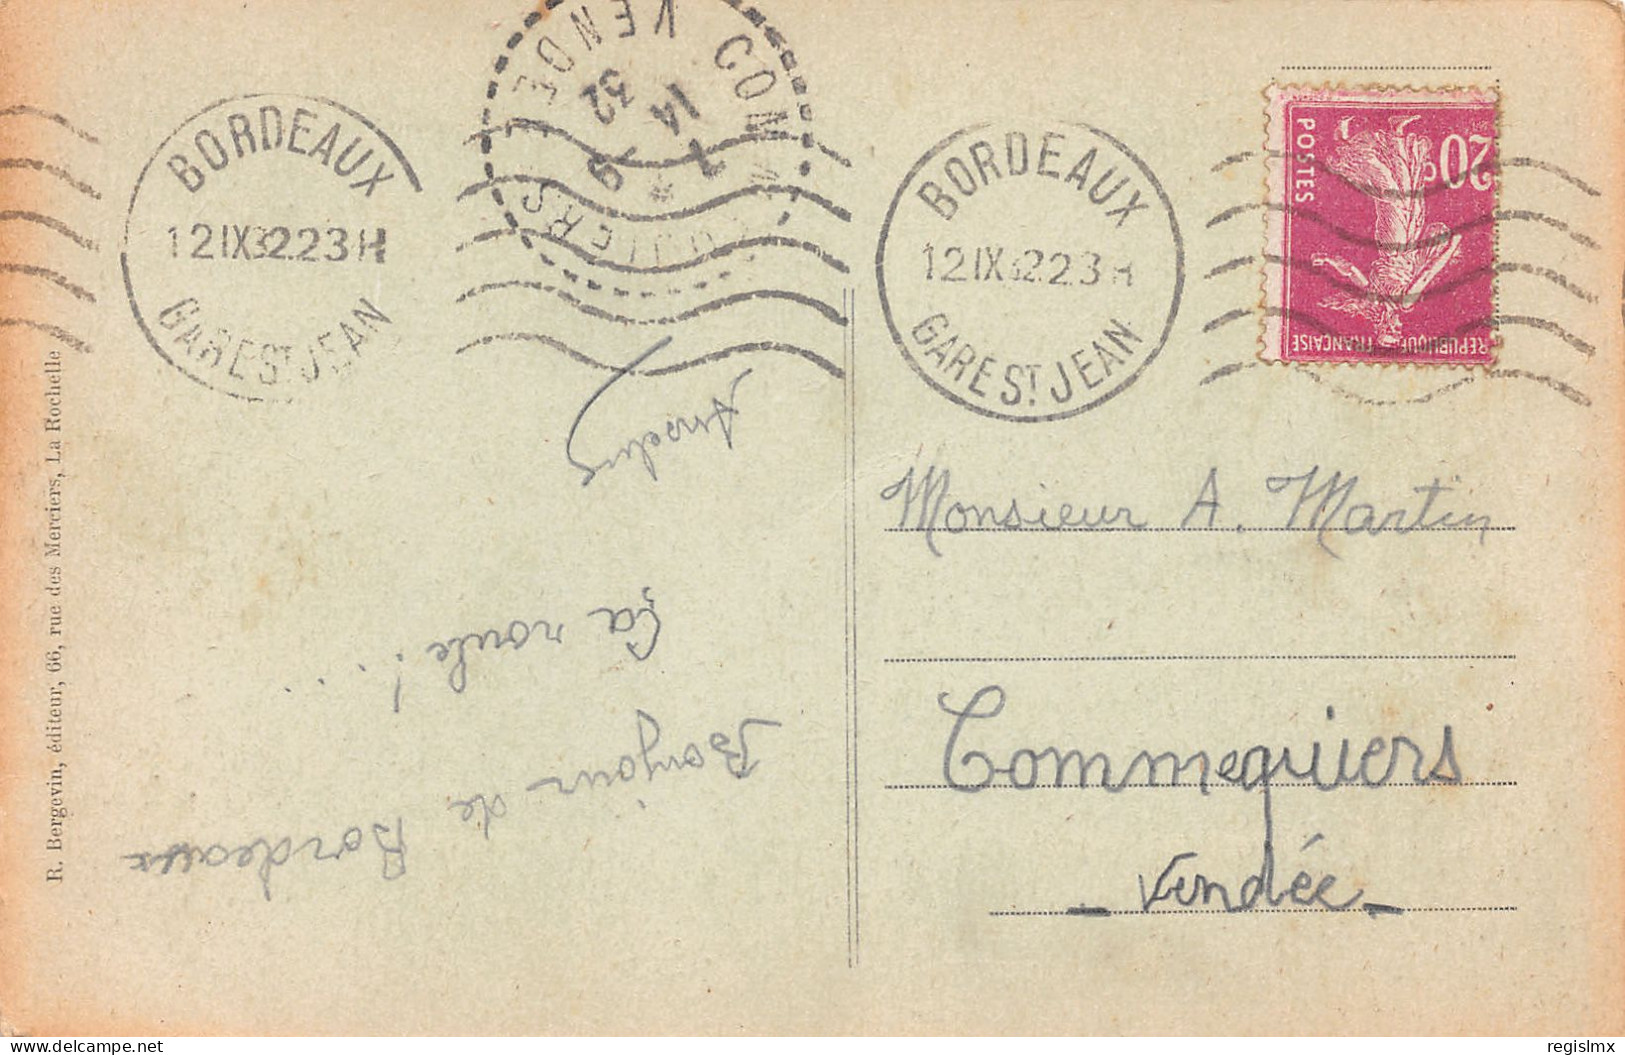 BORDEAUX
12 IX 32 23H
GARE ST JEAN
COMMEQUIERS
VENDEE
7
14 9
32
BORDEAUX
12 IX 32 23H
GARE ST JEAN
20c
POSTES
REPUBLIQUE FRANÇAISE
Bonjour de Bordeaux
Ça roule !...
Monsieur A. Martin
Commequiers
- Vendée -
R. Bergevin, éditeur, 66, rue des Merciers, La Rochelle
www.delcampe.net
regislmx